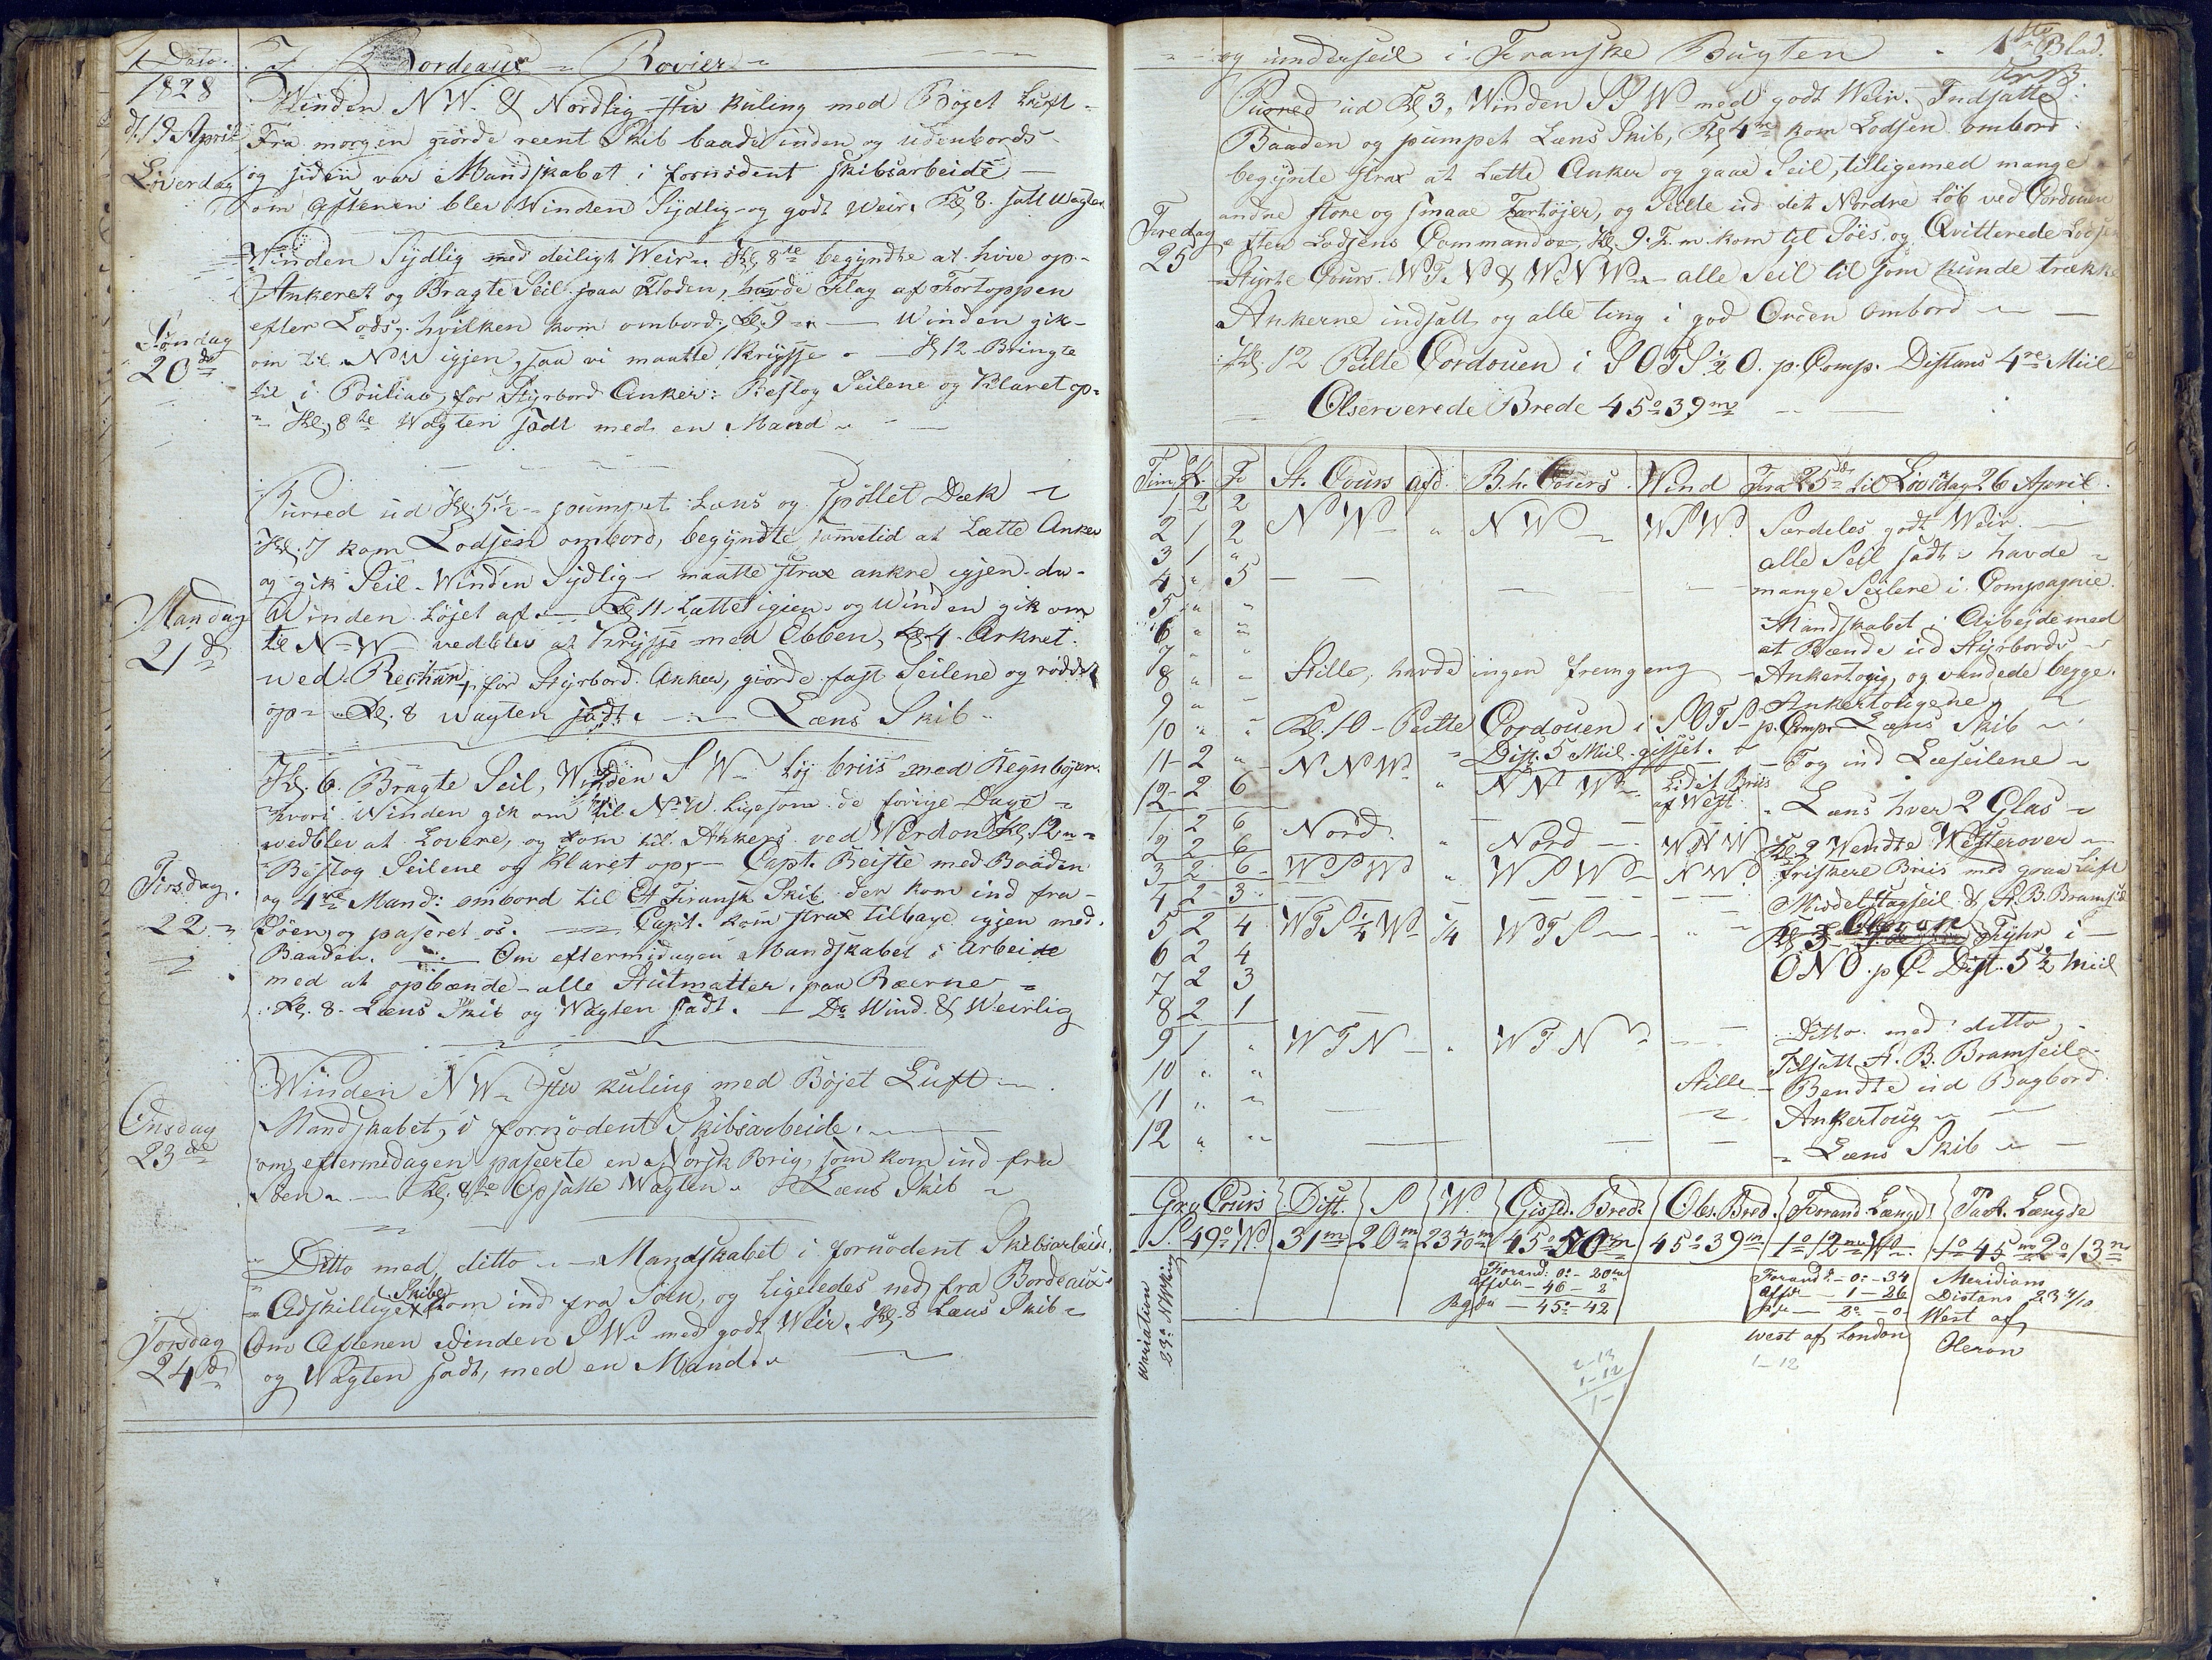 Dato. I Bordeaux Rovier
1828 Winden N W. & Nordlig stiv kuling med Bøyet Luft
d. 19 April Fra morgen giorde reent Skib baade inden og udenbords
Løverdag og siden var Mandskabet i fornødent skibsarbeide
om aftenen blev Winden Sydlig og godt Weir. Kl 8. satt Wagten
Winden Sydlig med deiligt Weir. Kl 8te begyndte at hive op
Ankeret og Bragte Seil paa Floden, havde Flag af Fortoppen
efter Lods, hvilken kom ombord, Kl. 9 Winden gik
Søndag om til N W igjen, saa vi maatte krysse Kl 12 Bringte
20de til i Pouliac, for Styrbord Anker: Beslog Seilene og Klaret op
Kl, 8te Wagten sadt med en Mand
Purred ud Kl. 5½ pumpet Læns og spøllet Dæk
Kl. 7 kom Lodsen ombord, begyndte sametid at Lætte Anker
og gik Seil. Winden Sydlig maatte strax ankre igjen da
Mandag Winden Løjet af. Kl 11 Lættet igien og Winden gik om
21de til N W vedblev at krysse med Ebben, Kl 4 Ankret
ved for Styrbord Anker, giorde fast Seilene og røddet
op Kl. 8 wagten sadt. Læns Skib
Kl. 6. Bragte Seil, Winden S W Løj briis med Regnbyer
hvori Winden gik om til N W. ligesom de forige Dage
wedblev at Lovere, og kom til Ankers ved Werdon Kl. 12
Beslog Seilene og Klaret op, Capt. Reiste med Baaden
Tirsdag. og 4re Mand: ombord til Et Fransk Skib der kom ind fra
22 Søen, og paseret os. Capt. kom strax tilbage igjen med
Baaden. Om eftermidagen Mandskabet i Arbeide
med at opbænde alle Stutmatter, paa Ræerne
Kl. 8. Læns Skib og Wagten sadt. Do Wind & Weirlig
Winden N W stiv kuling med Bøjet Luft
Onsdag Mandskabet, i fornødent Skibsarbeide.
23de om eftermedagen paseerte en Norsk Brig, som kom ind fra
Søen. Kl. 8te Opsatte Wagten. Læns Skib
Ditto med ditto Mandskabet i fornødent Skibsarbeide.
Skibe
Adskillige kom ind fra Søen, og Ligeledes ned fra Bordeaux
Torsdag Om Aftenen Winden S W. med godt Weir. Kl. 8 Læns Skib
24de og Wagten sadt, med en Mand.
og underseil i Franske Bugten 1ste Blad.
Purred ud Kl 3, Winden S S W med godt Weir. Indsatte
Baaden og pumpet Læns Skib, Kl 4re kom Lodsen ombord
begynte strax at Lætte Anker og gaae Seil, tilligemed mange
andre store og smaae Fartøjer, og Seilte ud det Nordre Løb ved Cordouen
Fredag efter Lodsens Commandoe, Kl. 9. F. m. kom til Søes og Qvitterede Lodsen
25 Styrte Cours. W T. N & W N W. alle Seil til som kunde trække
Ankerne indsatt, og alle ting i god Orden ombord
Kl. 12 Peilte Cordouen i S O T S ½ O. p. Comp. Distans 4re Miil
Observerede Brede 45° 39m
Tim. K. F St. Cours Afd. B. h. Cours Wind Fra 25de til Løverdag 26 April.
1 2 2 N W " N W W S W. Særdeles godt Weir.
2 1 2 alle Seil sadt. havde
3 1 " mange Seilere i Compagnie
4 " 5 Mandskabet i Arbejde med
5 " " at Bænde ud Styrbords
6 " " Ankertoug, og vendede begge
7 " " Ankertougene
8 " " Stille, havde ingen fremgang
9 " "
10 " " Kl. 10 Peilte Cordouen i S O T S p. Comp. Læns Skib
11 2 " N N W Dist. 5 Miil gisset. Tog ind Læseilene
12 2 6 " N N W Lidet Briis af West. Læns hver 2 Glas
1 2 6 Nord. " Nord W N W Kl 2 Wendte Westerover
2 2 6
3 2 6 W S W " W S W N W. friskere Briis med graa Luft
4 2 3 Middelstagseil & St. B. Bramseil
5 2 4 W T S ¼ W ¼ W T S Kl 3 Oleron Fyhr i
6 2 4 O N O. p C. Dist. 5½ Miil
7 2 3
8 2 1
9 1 " W T N " W T N Ditto med ditto
10 " " Tilsatt St. B. Bramseile
11 " " Stille Bendte ud Bagbord
12 " " Ankertoug
Læns Skib
Gr. Cours Dist. S W. Gissed. Bred. Obs. Bred. Forand. Længd. Pad. Længde
S. 49° W. 31m 20m 23 4/10m 45° 50m 45° 39m 1° 12m W 1° 45m 2° 13m
Variation 23° N Westlig
Forand: 0° - 20m
Affar - 46 - 2
Paa - 45° - 42
Forand. - 0° - 34
Affar - 1 - 26
Paa - 2° - 0
west af London
1 - 12
Meridians
Distans 23 4/10
West af
Oleron
2-13
1-12
1-1